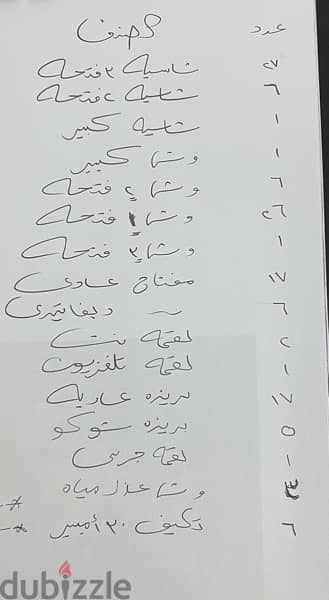 الصنف عدد
شاسيه ٣ فتحه ٢٧
شاسيه ٢ فتحه ٦
شاسيه كبير ١
وش كبير ١
وش ٢ فتحه ٦
وش ١ فتحه ٢٦
وش ٣ فتحه ١
مفتاح عادى ١٧
~ ديفياتيرى ٦
لقمه نت ٢
لقمه تلفزيون ١
بريزه عاديه ١٧
بريزه شوكو ٥
لقمة جرس ١
وش عازل مياه ٣
تكييف ٣٠ أمبير ٦
dubizzle